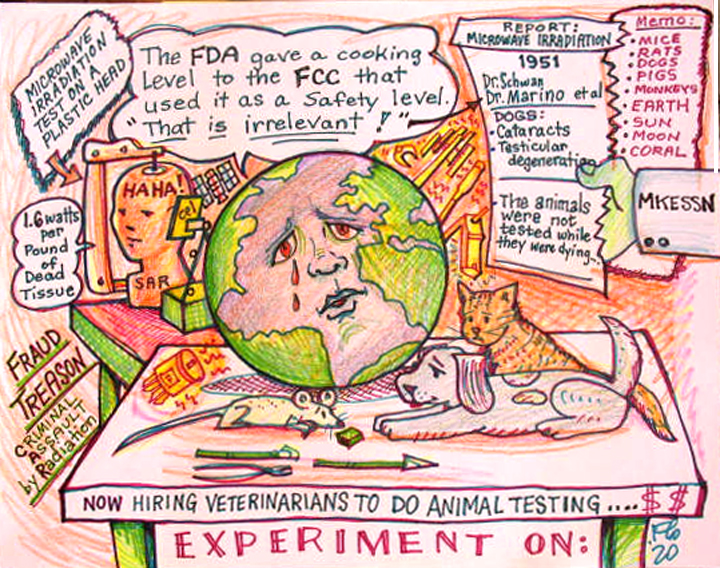 MICROWAVE
IRRADIATION
TEST ON A
PLASTIC HEAD
The FDA gave a cooking
Level to the FCC that
used it as a Safety level.
"That is irrelevant!"
REPORT:
MICROWAVE IRRADIATION
1951
Dr. Schwan
Dr. Marino et al
DOGS:
• Cataracts
• Testicular
degeneration
• The animals
were not
tested while
they were dying...
Memo:
• MICE
RATS
• DOGS
• PIGS
• MONKEYS
• EARTH
• SUN
• MOON
• CORAL
MKESSN
HAHA!
SAR
1.6 watts
per
Pound
of
Dead
Tissue
FRAUD
TREASON
CRIMINAL
ASSAULT
by Radiation
NOW HIRING VETERINARIANS TO DO ANIMAL TESTING.... $ $
EXPERIMENT ON:
'20